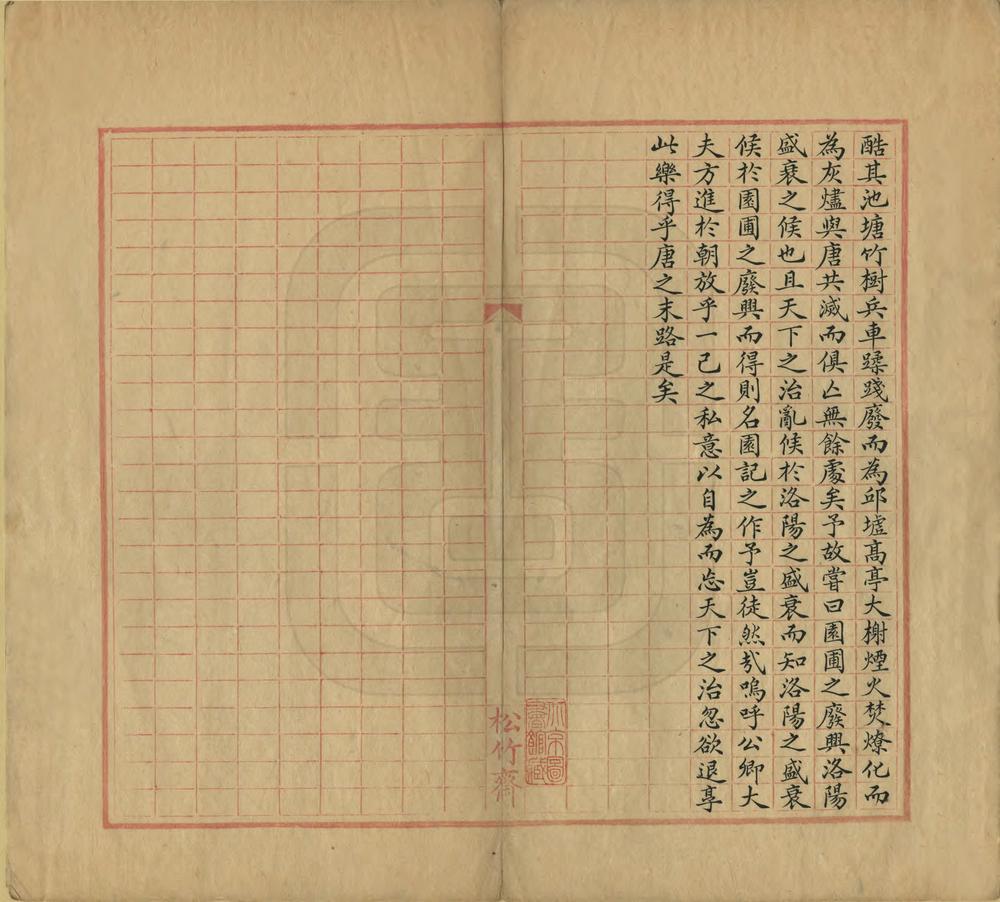 酷其池塘竹樹兵車蹂踐廢而為邱墟高亭大榭煙火焚燎化而
為灰燼與唐共滅而俱亾無餘處矣予故嘗曰園圃之廢興洛陽
盛衰之候也且天下之治亂候於洛陽之盛衰而知洛陽之盛衰
候於園圃之廢興而得則名園記之作予豈徒然㢤嗚呼公卿大
夫方進於朝放乎一己之私意以自為而忘天下之治忽欲退享
此樂得乎唐之末路是矣
松竹齋